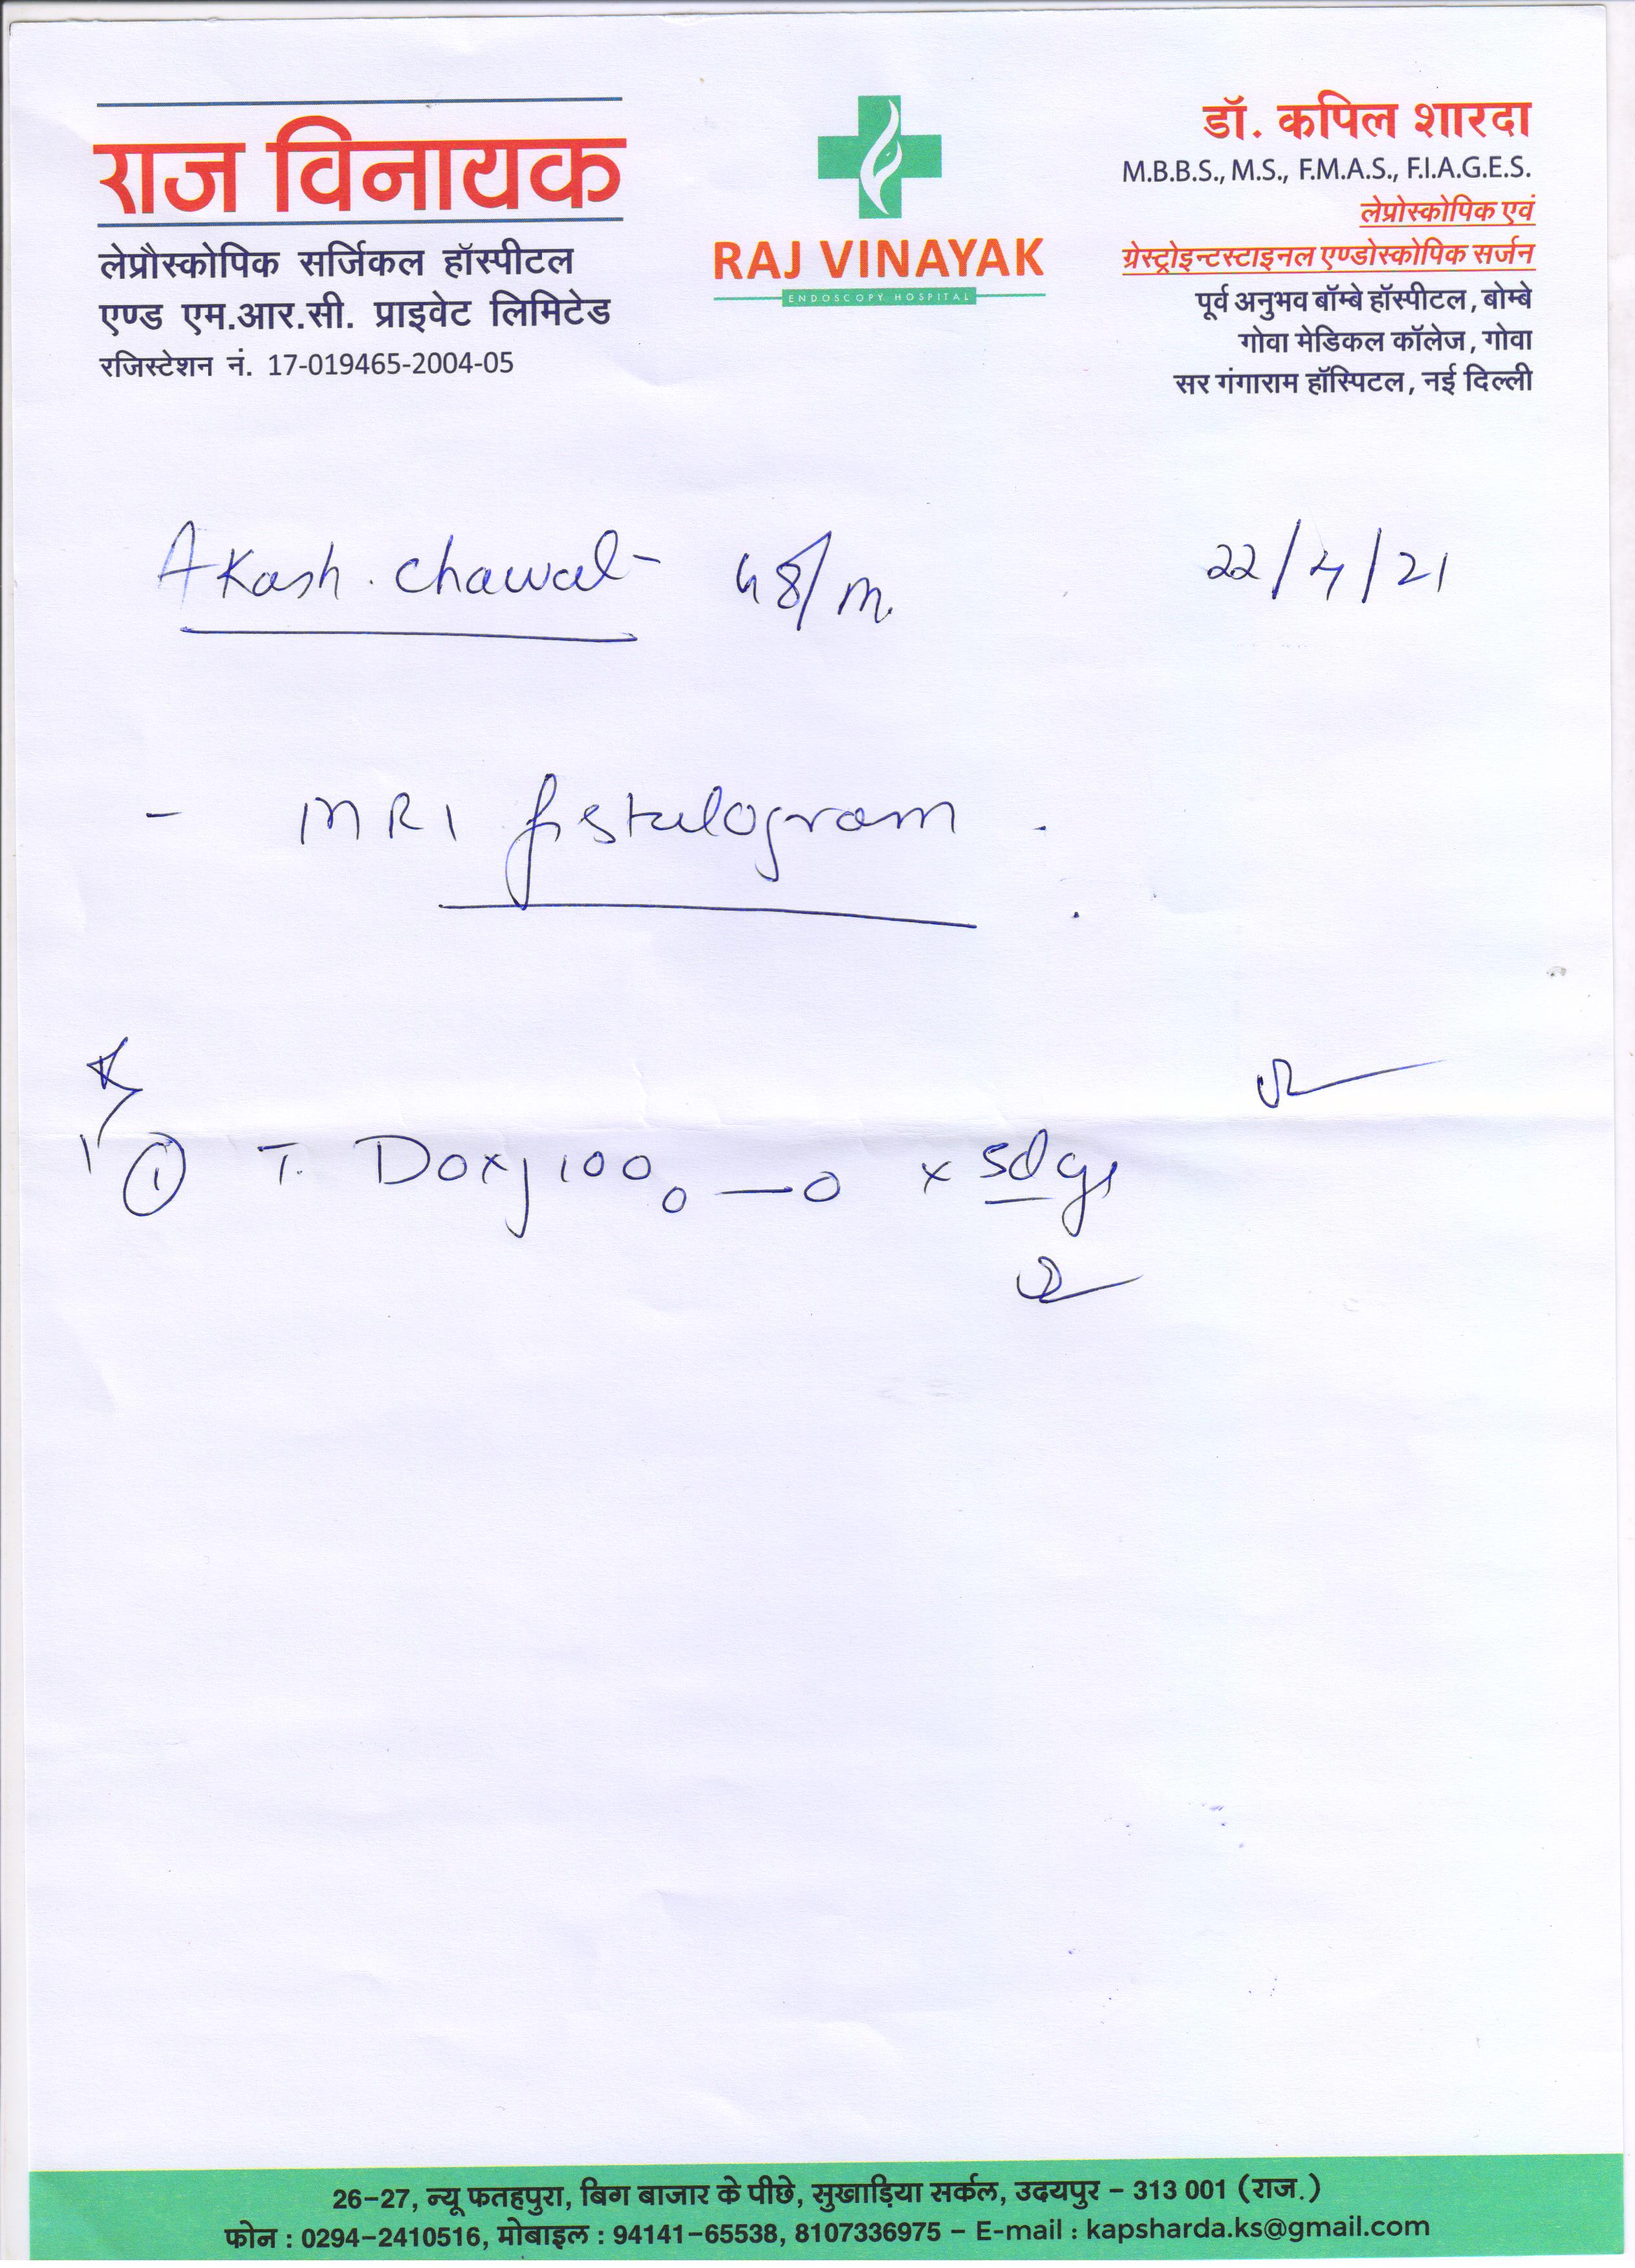 राज विनायक
लेप्रौस्कोपिक सर्जिकल हॉस्पीटल
एण्ड एम.आर.सी. प्राइवेट लिमिटेड
रजिस्टेशन नं. 17-019465-2004-05
RAJ VINAYAK
ENDOSCOPY HOSPITAL
डॉ. कपिल शारदा
M.B.B.S., M.S., F.M.A.S., F.I.A.G.E.S.
लेप्रोस्कोपिक एवं
ग्रेस्ट्रोइन्टस्टाइनल एण्डोस्कोपिक सर्जन
पूर्व अनुभव बॉम्बे हॉस्पीटल, बोम्बे
गोवा मेडिकल कॉलेज, गोवा
सर गंगाराम हॉस्पिटल, नई दिल्ली
Akash. Chawat 48/m. 22/4/21
- MRI fistulogram.
① T. Doxy 100 0—0 x 5dys
26-27, न्यू फतहपुरा, बिग बाजार के पीछे, सुखाड़िया सर्कल, उदयपुर - 313 001 (राज.)
फोन : 0294-2410516, मोबाइल : 94141-65538, 8107336975 - E-mail : kapsharda.ks@gmail.com